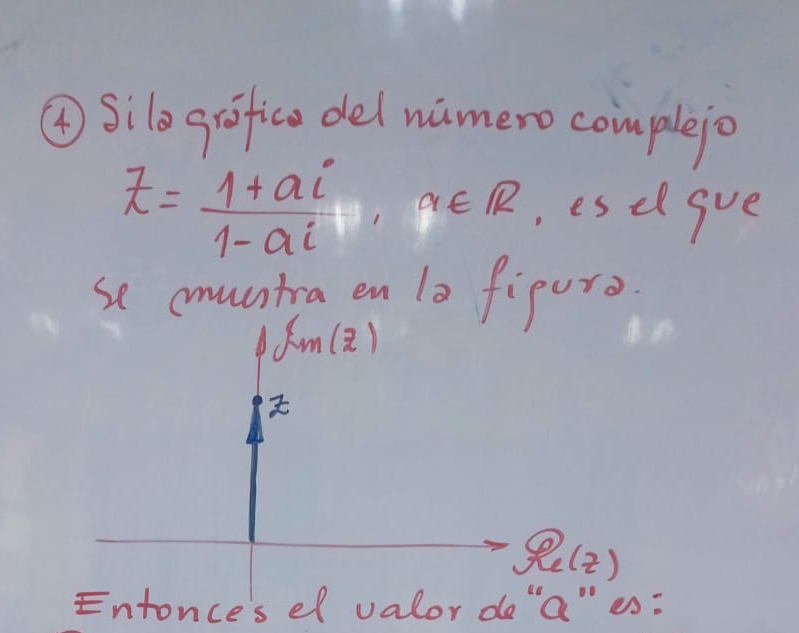 ④ Si la gráfica del número complejo
z = (1+ai)/(1-ai), a∈ℝ, es el que
se muestra en la figura.
Im(z)
z
Re(z)
Entonces el valor de "a" es: